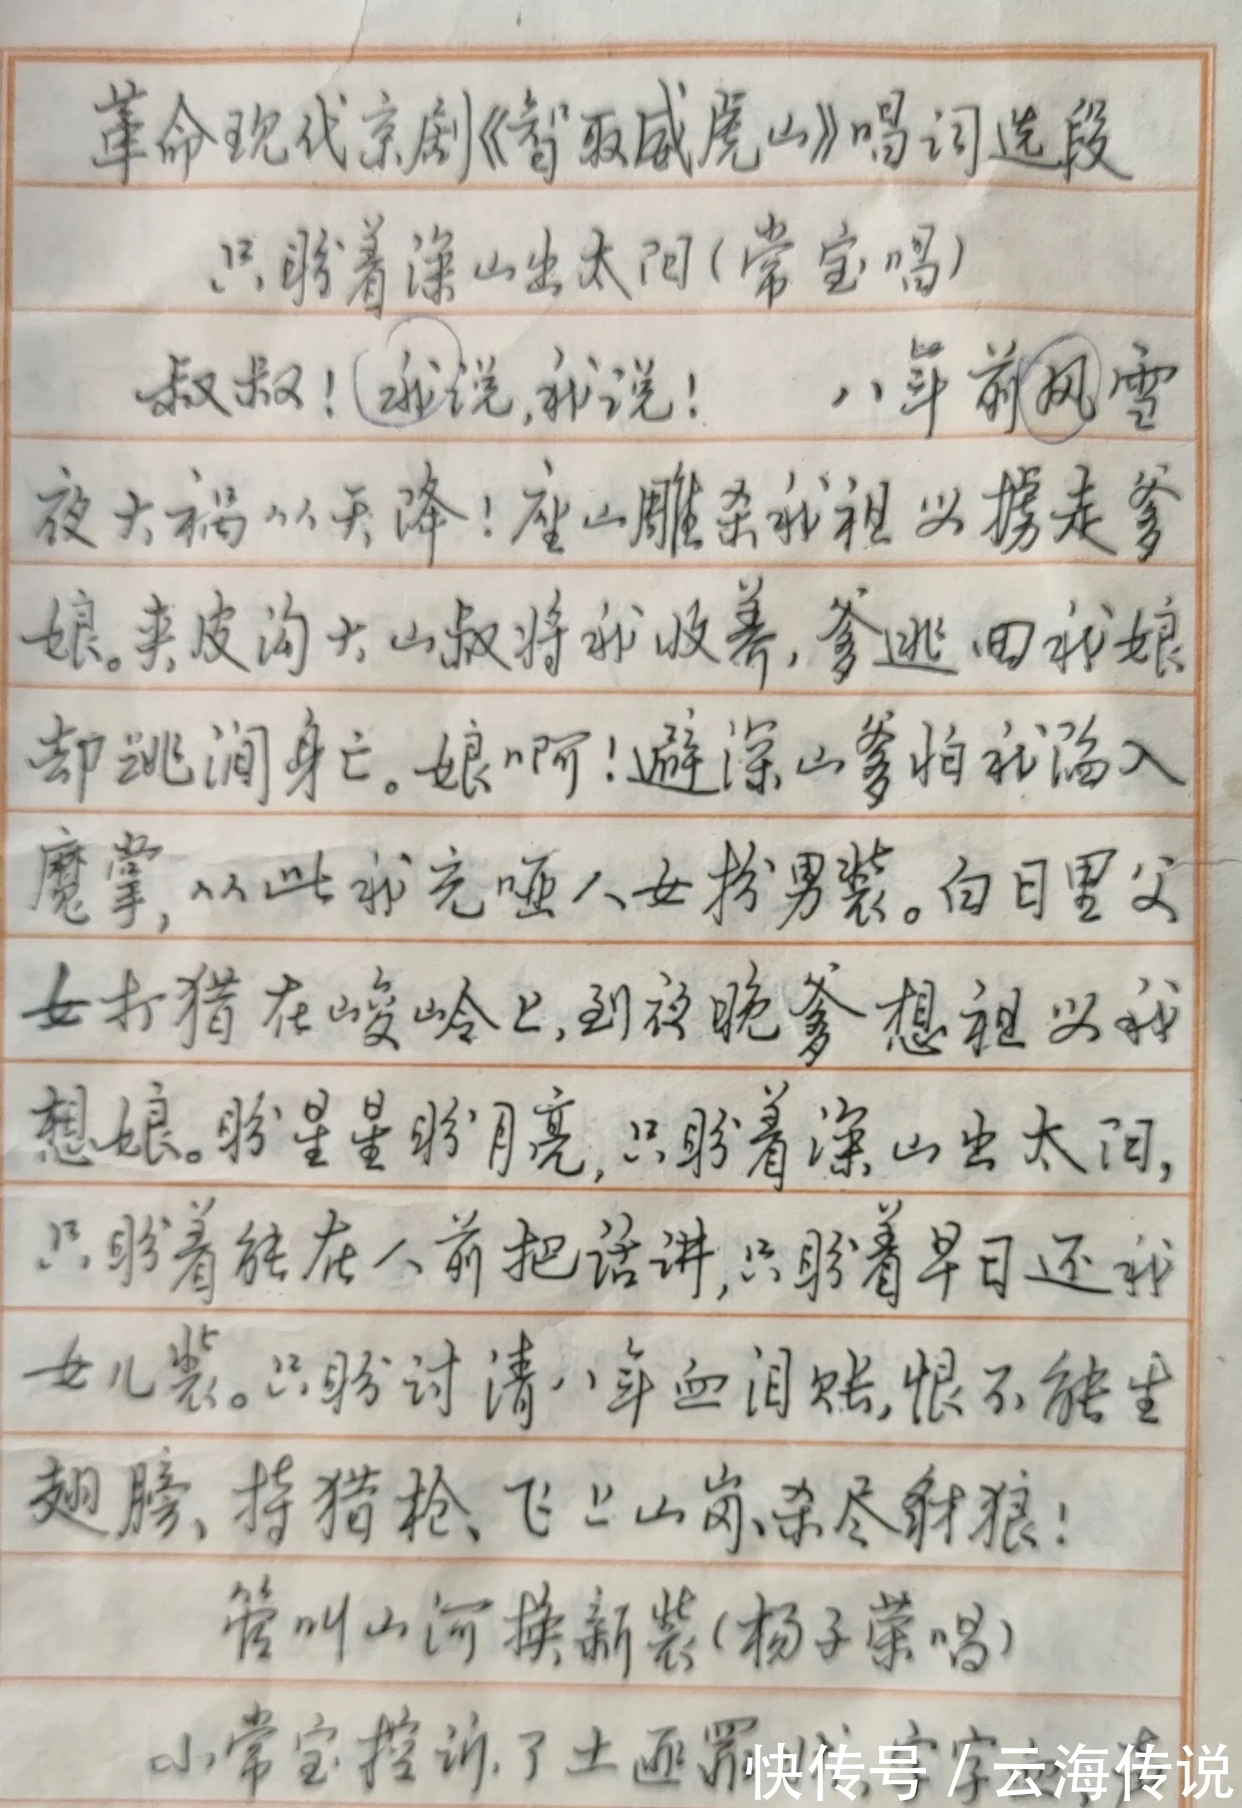 革命现代京剧《智取威虎山》唱词选段
只盼着深山出太阳(常宝唱)
叔叔!我说,我说! 八年前风雪
夜大祸从天降!座山雕杀我祖父掳走爹
娘。夹皮沟大山叔将我收养,爹逃回我娘
却跳涧身亡。娘啊!避深山爹怕我陷入
魔掌,从此我充哑人女扮男装。白日里父
女打猎在峻岭上,到夜晚爹想祖父我
想娘。盼星星盼月亮,只盼着深山出太阳,
只盼着能在人前把话讲,只盼着早日还我
女儿装。只盼讨清八年血泪账,恨不能生
翅膀、持猎枪、飞上山岗、杀尽豺狼!
管叫山河换新装(杨子荣唱)
小常宝控诉了土匪罪
快传号/云海传说